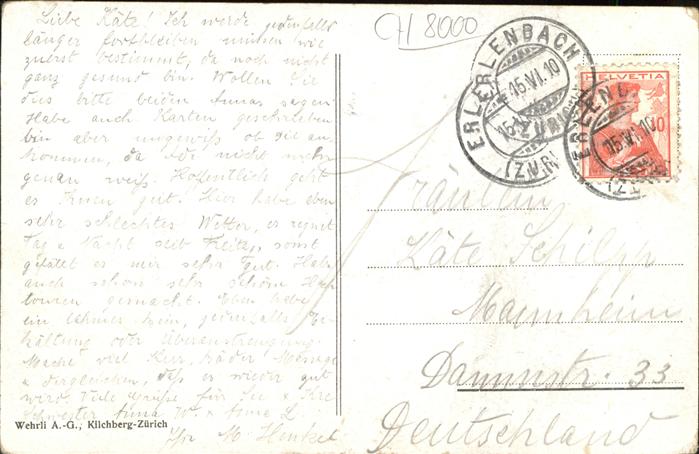 Liebe Käte! Ich werde jedenfalls
länger fortbleiben müssen wie
zuerst bestimmt, da noch nicht
ganz gesund bin. Wollen Sie
dies bitte beiden Annas sagen.
Habe auch Karten geschrieben
bin aber ungewiß ob sie an-
kommen, da nicht mehr
genau weiß. Hoffentlich geht
es Ihnen gut. Hier habe eben
sehr schlechtes Wetter, es regnet
Tag u Nacht seit Freitag, sonst
gefällt es mir sehr gut. Habe
auch schon sehr schöne
touren gemacht. Eben habe
ein lahmes Bein, jedenfalls Er-
kältung oder Überanstrengung.
Mache viel
u dergleichen, daß es wieder gut
wird. Viele Grüße für Sie u Ihre
Schwester Anna W. u Anna L.
Ihr M. Henkel
Wehrli A.-G., Kilchberg-Zürich
CH 8000
ERLENBACH
15.VI.10
(ZÜRICH)
HELVETIA
10
ERLENB
15.VI.10
(ZÜ
Fräulein
Käte Schilpp
Mannheim
Dammstr. 33
Deutschland